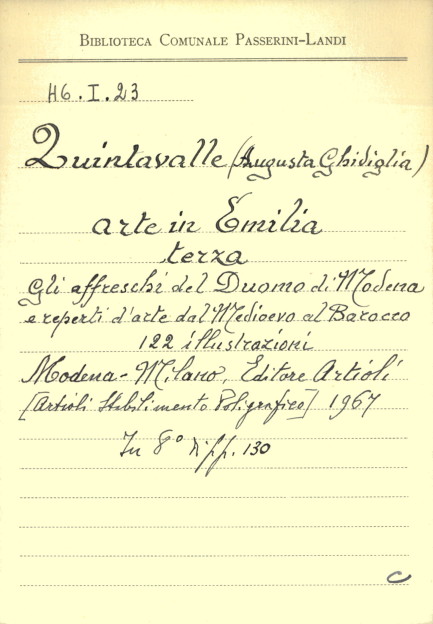 BIBLIOTECA COMUNALE PASSERINI-LANDI
H6.I.23
Quintavalle (Augusta Ghidiglia)
arte in Emilia
terza
Gli affreschi del Duomo di Modena
e reperti d'arte dal Medioevo al Barocco
122 illustrazioni
Modena-Milano, Editore Artioli
[Artioli Stabilimento Poligrafico] 1967
In 8° di pp. 130
C